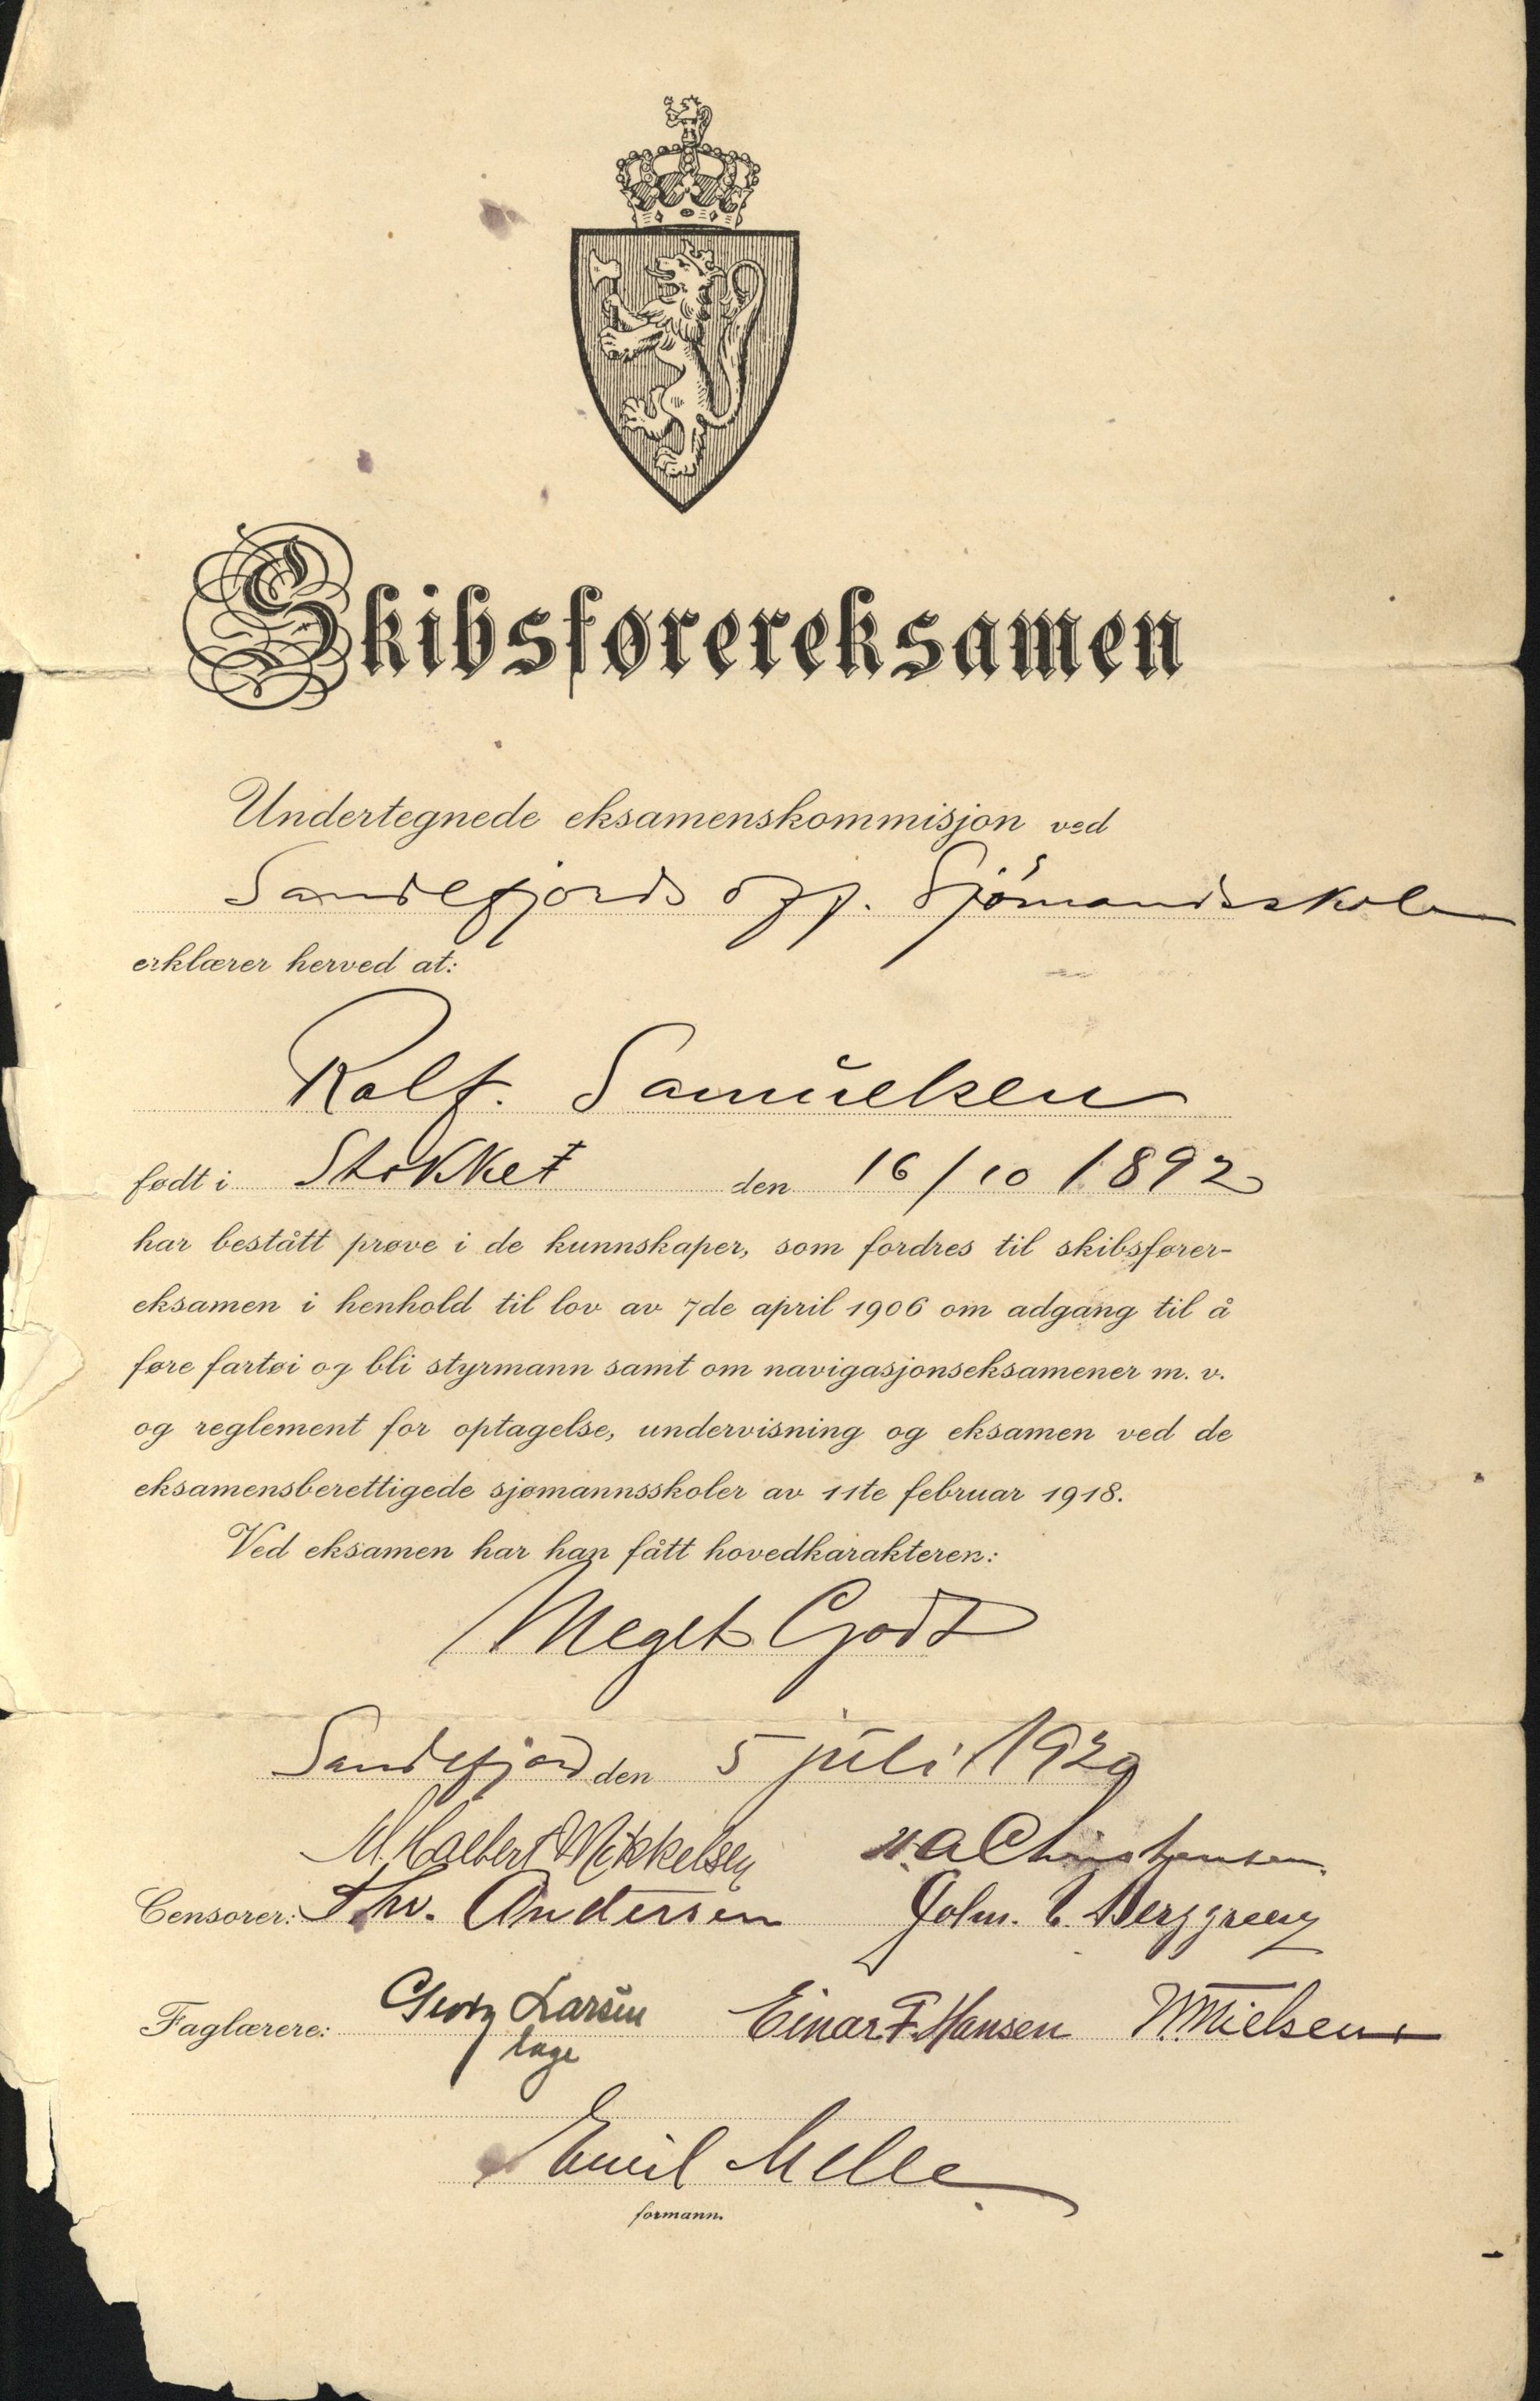 Skibsførereksamen
Undertegnede eksamenskommisjon ved
Sandefjords off. Sjømandsskole
erklærer herved at:
Rolf. Samuelsen
født i Stokket den 16/10 1892
har bestått prøve i de kunnskaper, som fordres til skibsfører-
eksamen i henhold til lov av 7de april 1906 om adgang til å
føre fartøi og bli styrmann samt om navigasjonseksamener m. v.
og reglement for optagelse, undervisning og eksamen ved de
eksamensberettigede sjømannsskoler av 11te februar 1918.
Ved eksamen har han fått hovedkarakteren:
Meget Godt
Sandefjord den 5 juli 1929
Mikkelsen A Christensen
Censorer: Thv. Andersen John. Berggreen
Faglærere: Georg Larsen Einar F. Hansen N. Nielsen
læge
Emil Melle
formann.